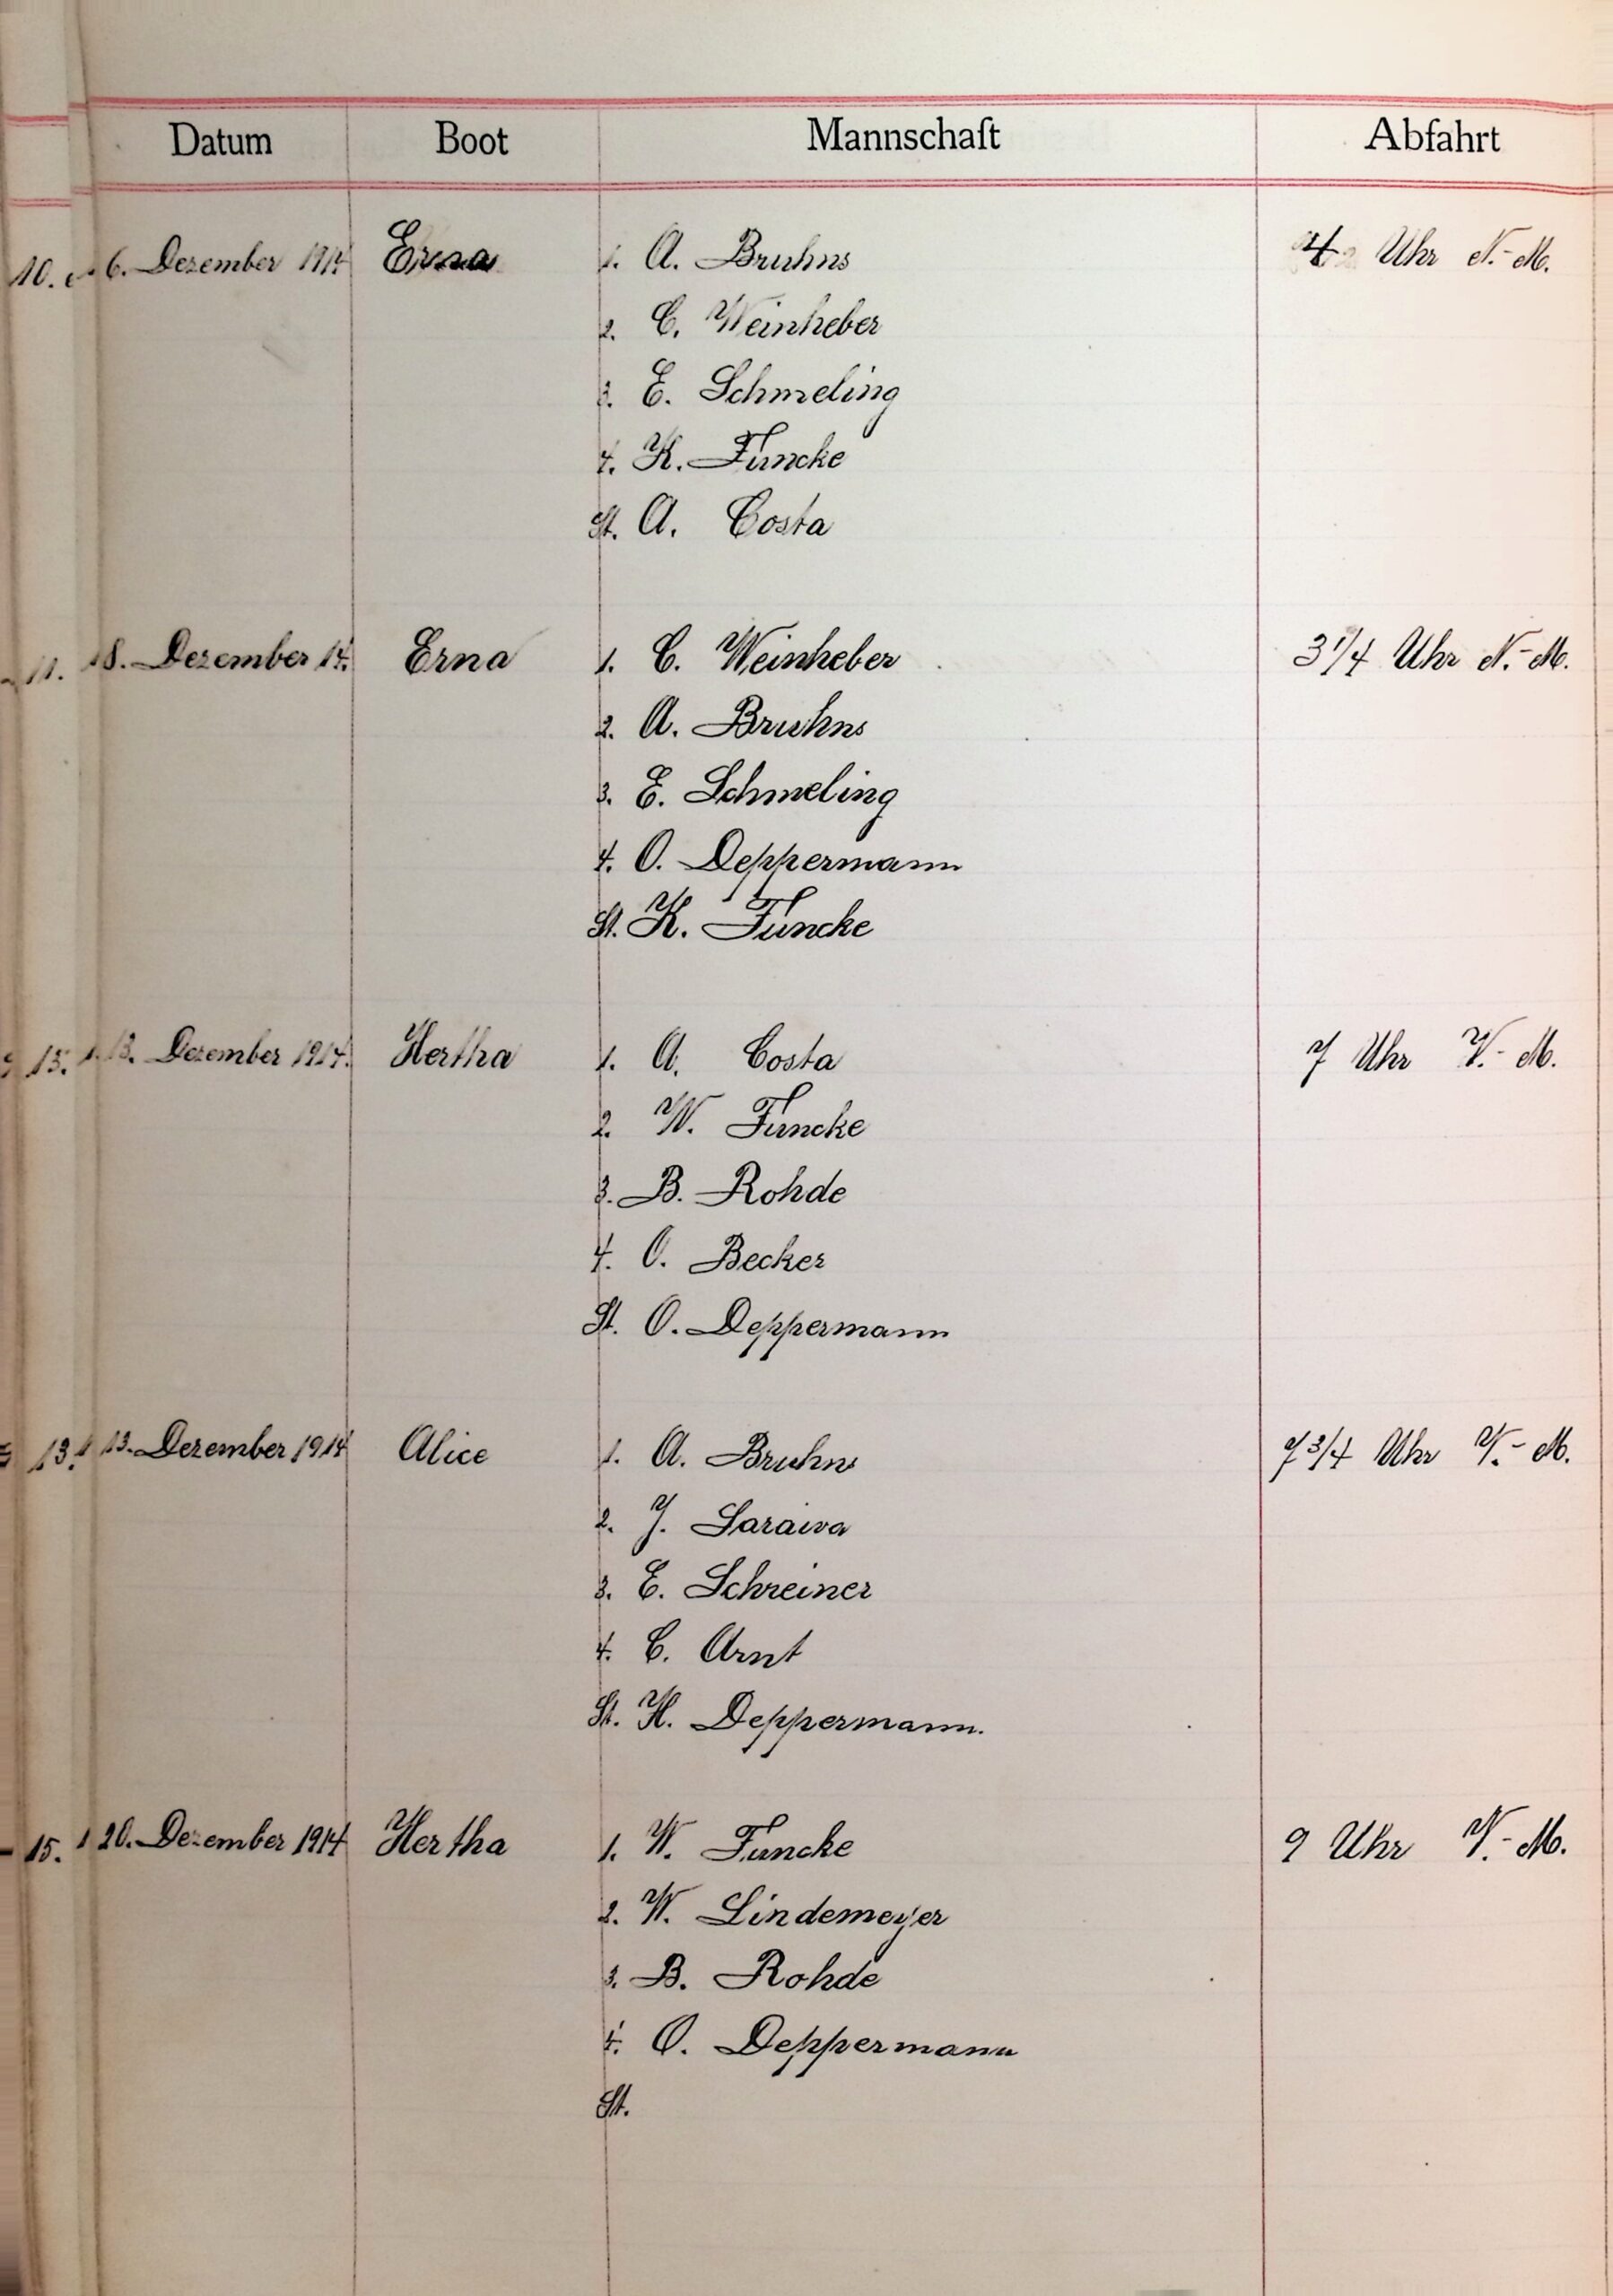 Datum Boot Mannschaft Abfahrt
10. 6. Dezember 1914 Erna 1. A. Bruhns 4 Uhr N.-M.
2. C. Weinheber
3. E. Schmeling
4. K. Funcke
St. A. Costa
11. 8. Dezember 14. Erna 1. C. Weinheber 3 1/4 Uhr N.-M.
2. A. Bruhns
3. E. Schmeling
4. O. Deppermann
St. K. Funcke
15. 13. Dezember 1914. Hertha 1. A. Costa 7 Uhr V.-M.
2. W. Funcke
3. B. Rohde
4. O. Becker
St. O. Deppermann
13. 13. Dezember 1914 Alice 1. A. Bruhns 7 3/4 Uhr V.-M.
2. J. Saraiva
3. E. Schreiner
4. C. Arnt
St. H. Deppermann.
15. 20. Dezember 1914 Hertha 1. W. Funcke 9 Uhr V.-M.
2. W. Lindemeyer
3. B. Rohde
4. O. Deppermann
St.